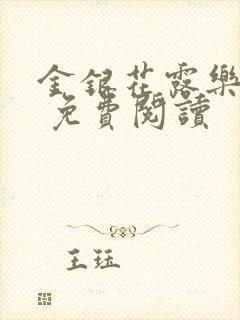 金銀花露樂
免費閱讀
王珏